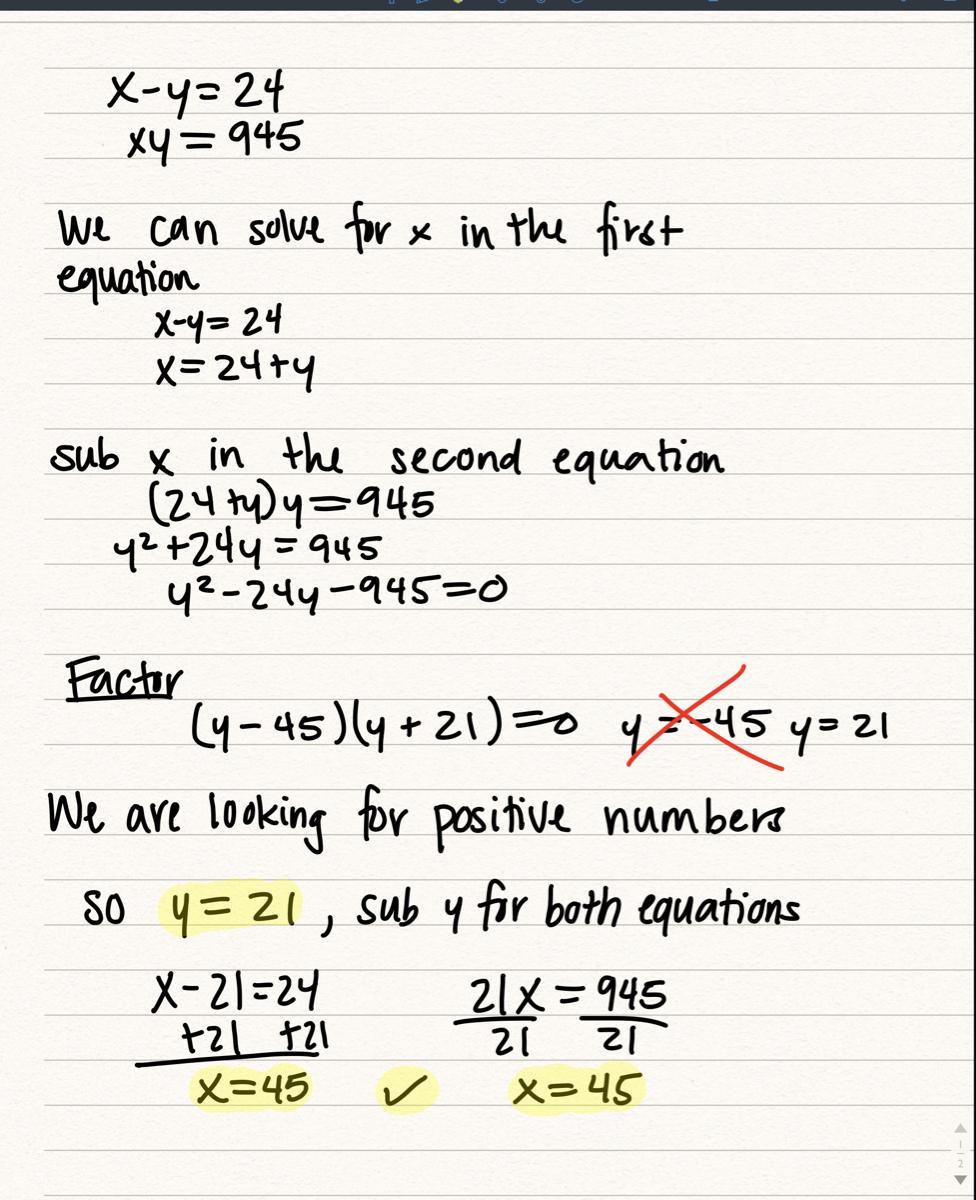 x-y= 24
xy = 945
We can solve for x in the first
equation
x-y= 24
x= 24+y
sub x in the second equation
(24+y)y=945
y²+24y = 945
y²-24y-945=0
Factor
(y-45)(y+21)=0 y=-45 y=21
We are looking for positive numbers
so y= 21, sub y for both equations
x-21=24 21x = 945
+21 +21 21 21
x=45 ✓ x=45
1
2